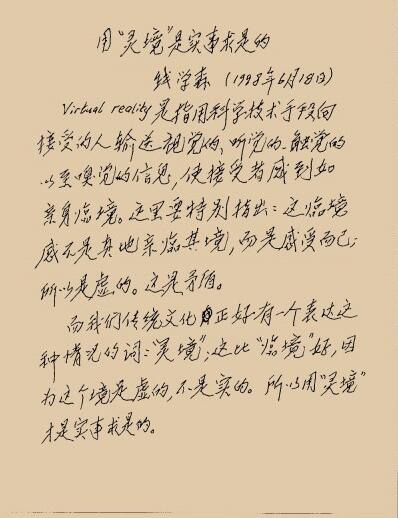 用“灵境”是实事求是的
钱学森 (1998年6月18日)
Virtual reality是指用科学技术手段向
接受的人输送视觉的、听觉的、触觉的
以至嗅觉的信息,使接受者感到如
亲身临境。这里要特别指出:这临境
感不是真地亲临其境,而是感受而已;
所以是虚的。这是矛盾。
而我们传统文化正好有一个表达这
种情况的词:“灵境”;这比“临境”好,因
为这个境是虚的,不是实的。所以用“灵境”
才是实事求是的。